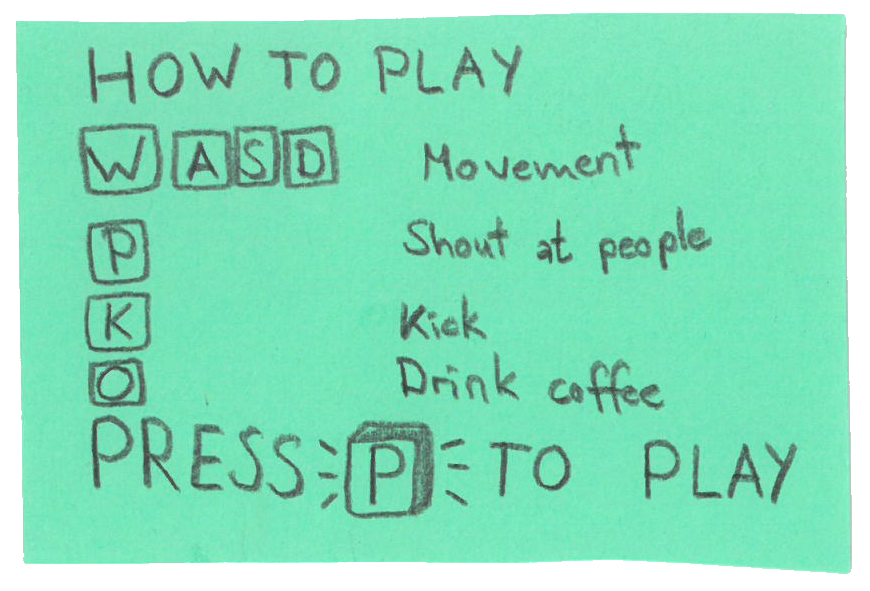 HOW TO PLAY
W A S D Movement
P Shout at people
K Kick
O Drink coffee
PRESS P TO PLAY